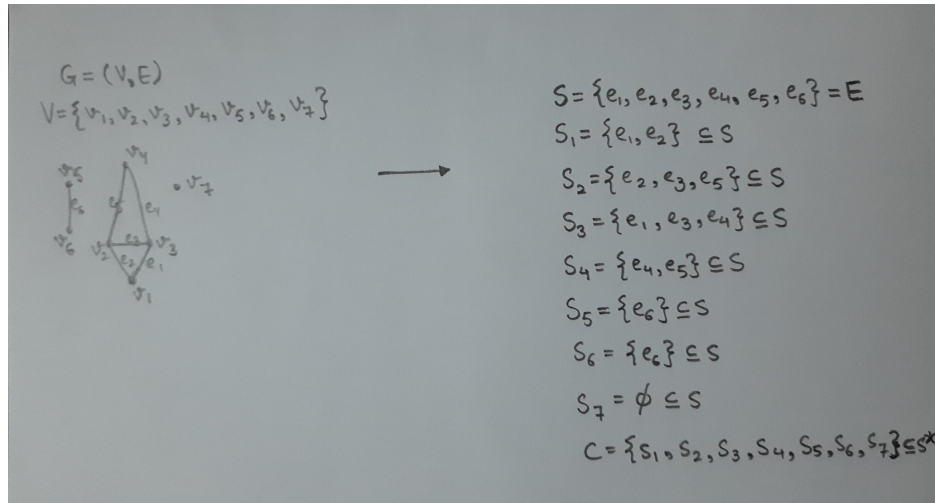 G = (V, E)
V = {v₁, v₂, v₃, v₄, v₅, v₆, v₇}
v₄
v₅
v₇
e₆
e₅
e₄
v₆
v₂
e₃
v₃
e₂
e₁
v₁
S = {e₁, e₂, e₃, e₄, e₅, e₆} = E
S₁ = {e₁, e₂} ⊆ S
S₂ = {e₂, e₃, e₅} ⊆ S
S₃ = {e₁, e₃, e₄} ⊆ S
S₄ = {e₄, e₅} ⊆ S
S₅ = {e₆} ⊆ S
S₆ = {e₆} ⊆ S
S₇ = ϕ ⊆ S
C = {S₁, S₂, S₃, S₄, S₅, S₆, S₇} ⊆ S*